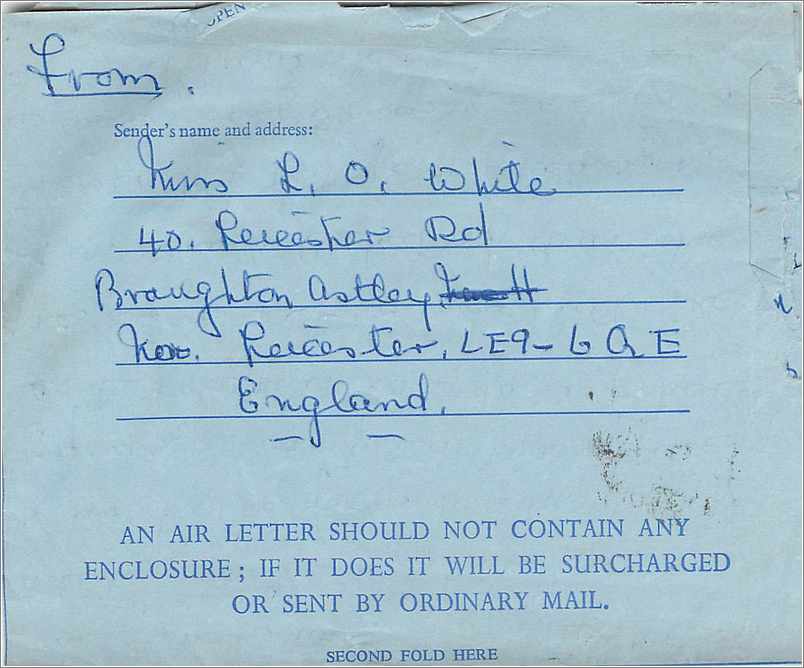 OPEN
From.
Sender's name and address:
Miss L. O. White
40. Leicester Rd
Broughton Astley,
Nr. Leicester, LE9-6QE
England.
AN AIR LETTER SHOULD NOT CONTAIN ANY
ENCLOSURE; IF IT DOES IT WILL BE SURCHARGED
OR SENT BY ORDINARY MAIL.
SECOND FOLD HERE